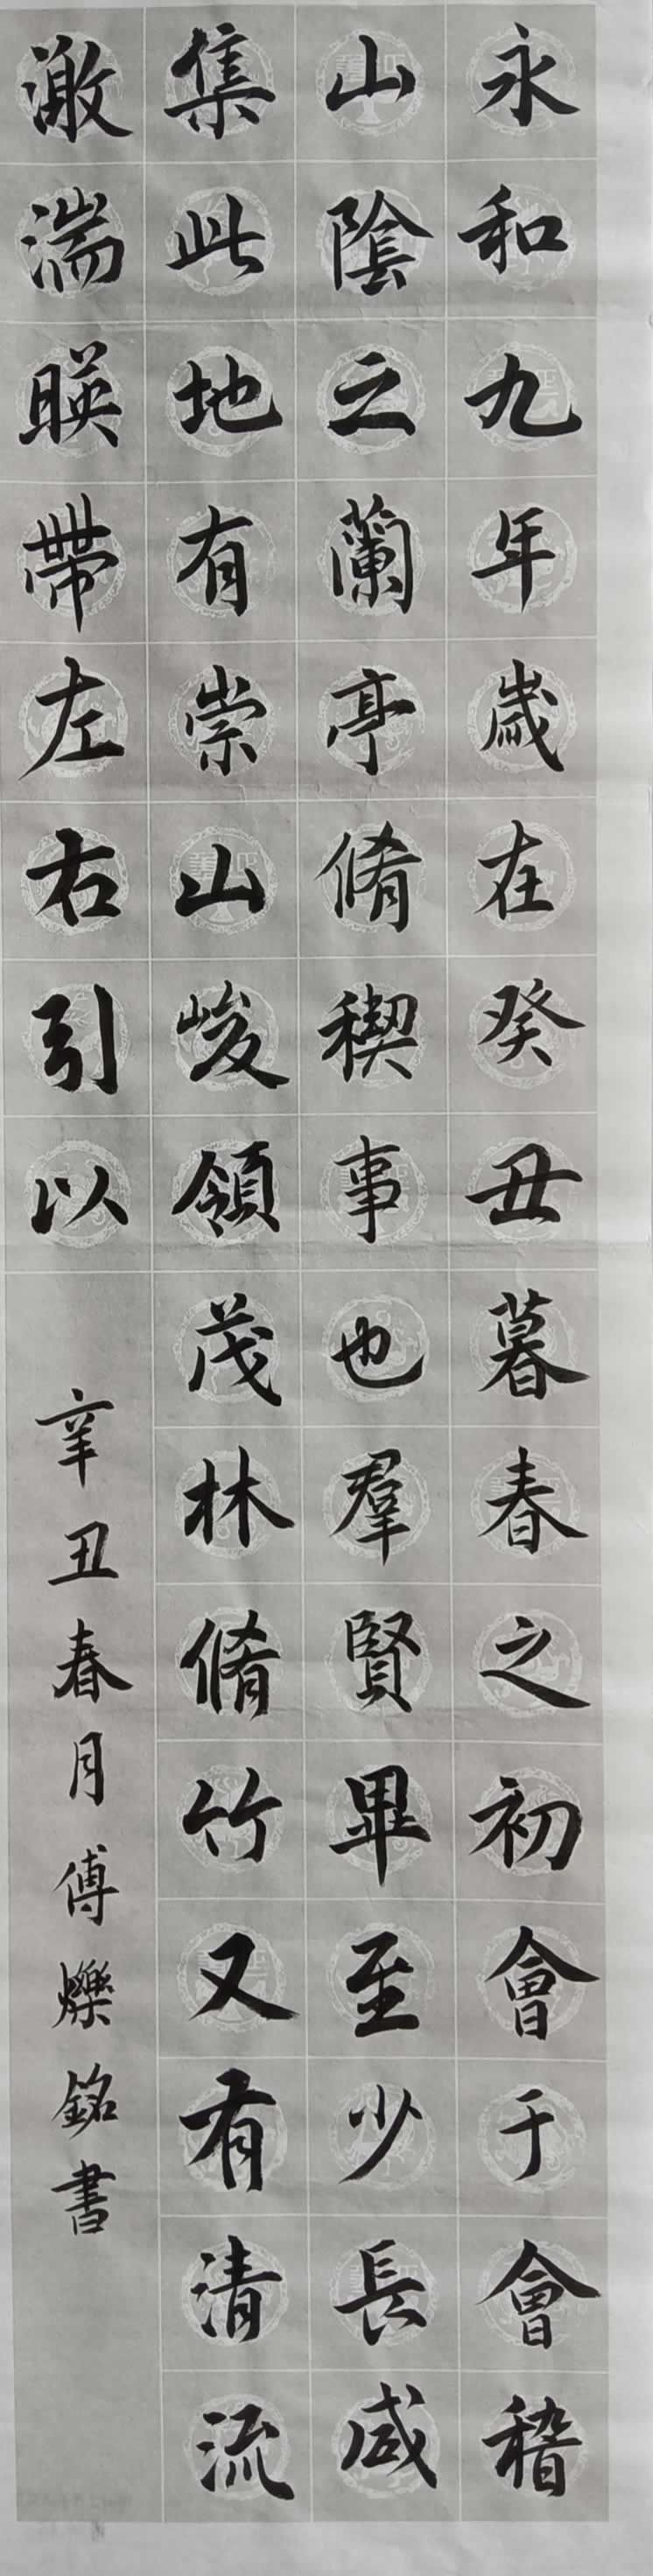 永和九年歲在癸丑暮春之初會于會稽
山陰之蘭亭脩禊事也羣賢畢至少長咸
集此地有崇山峻領茂林脩竹又有清流
激湍暎帶左右引以
辛丑春月傅爍銘書